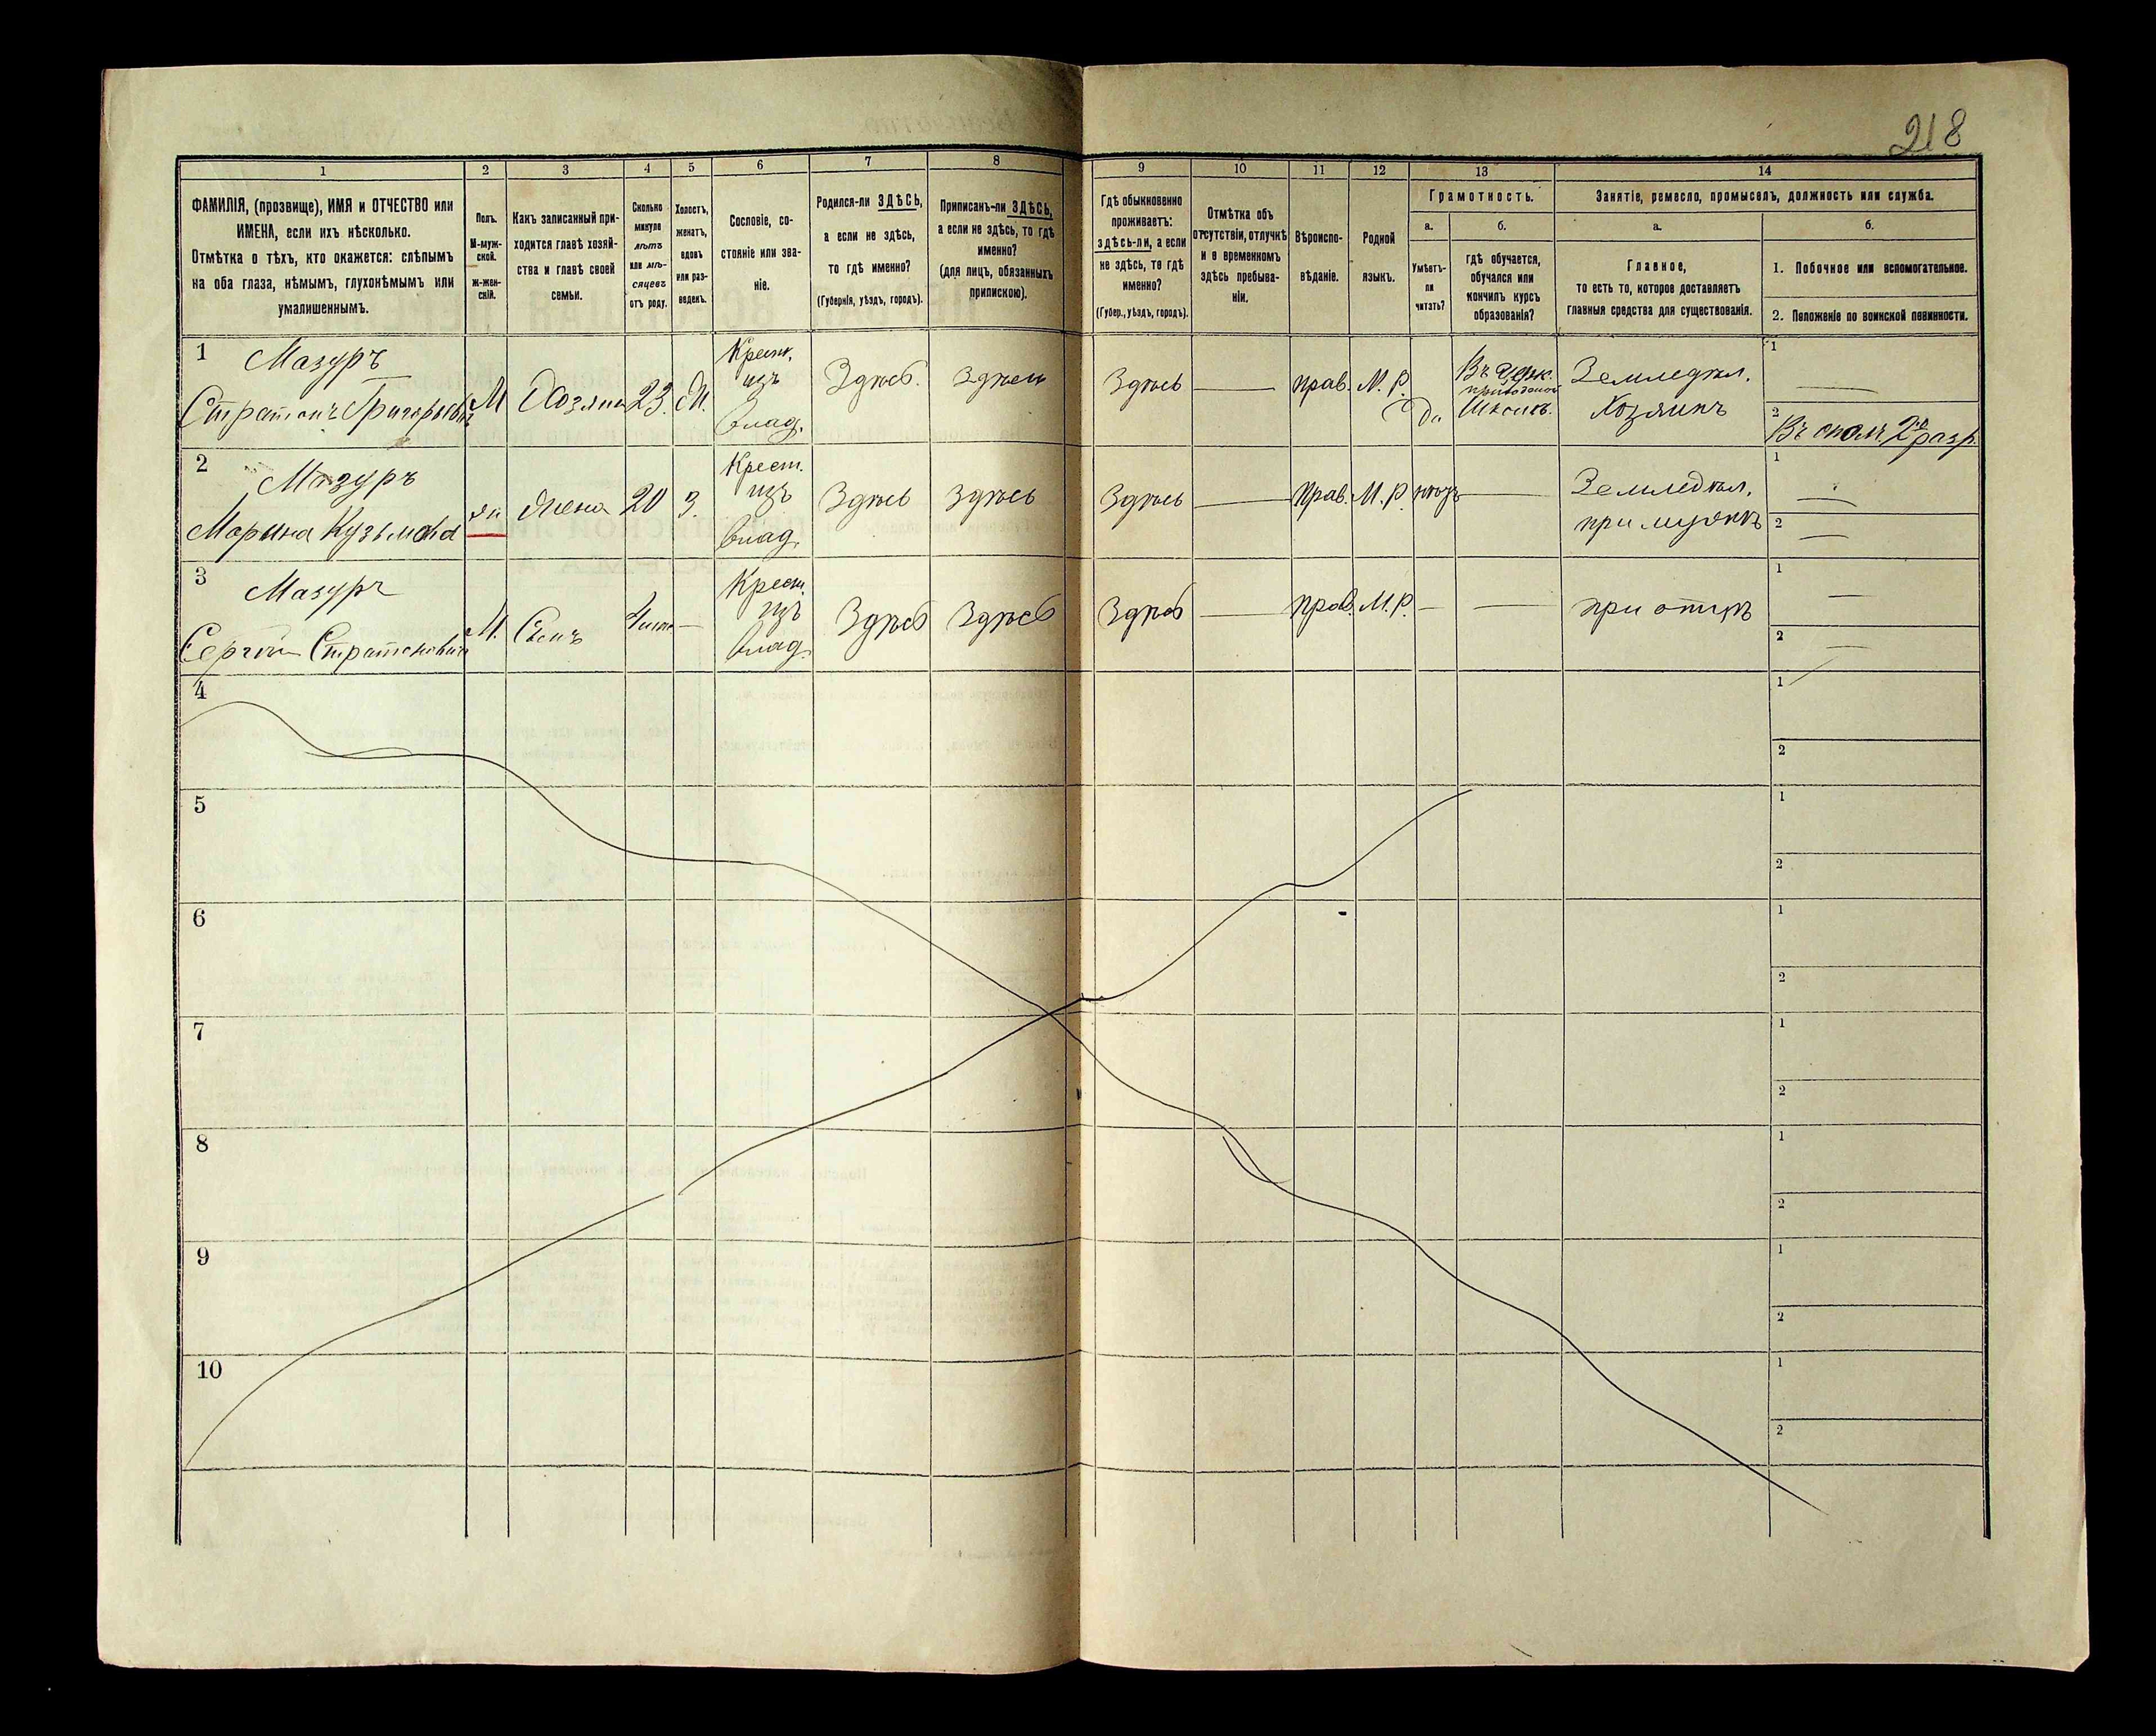 218
1 2 3 4 5 6 7 8 9 10 11 12 13 14
ФАМИЛІЯ, (прозвище), ИМЯ и ОТЧЕСТВО или
ИМЕНА, если ихъ нѣсколько.
Отмѣтка о тѣхъ, кто окажется: слѣпымъ
на оба глаза, нѣмымъ, глухонѣмымъ или
умалишеннымъ.
Полъ.
М-муж-
ской.
ж-жен-
скій.
Какъ записанный при-
ходится главѣ хозяй-
ства и главѣ своей
семьи.
Сколько
минуло
лѣтъ
или мѣ-
сяцевъ
отъ роду.
Холостъ,
женатъ,
вдовъ
или раз-
веденъ.
Сословіе, со-
стояніе или зва-
ніе.
Родился-ли ЗДѢСЬ,
а если не здѣсь,
то гдѣ именно?
(Губернія, уѣздъ, городъ).
Приписанъ-ли ЗДѢСЬ,
а если не здѣсь, то гдѣ
именно?
(для лицъ, обязанныхъ
припискою).
Гдѣ обыкновенно
проживаетъ:
здѣсь-ли, а если
не здѣсь, то гдѣ
именно?
(Губер., уѣздъ, городъ).
Отмѣтка объ
отсутствіи, отлучкѣ
и о временномъ
здѣсь пребыва-
ніи.
Вѣроиспо-
вѣданіе.
Родной
языкъ.
Грамотность.
а.
Умѣетъ-
ли
читать?
б.
гдѣ обучается,
обучался или
кончилъ курсъ
образованія?
Занятіе, ремесло, промыселъ, должность или служба.
а.
Главное,
то есть то, которое доставляетъ
главныя средства для существованія.
б.
1. Побочное или вспомогательное.
2. Положеніе по воинской повинности.
1
Мазуръ
Стратонъ Григорьевичъ
М
Хозяинъ
23.
Ж.
Крест.
изъ
влад.
Здѣсь.
Здѣсь
Здѣсь
прав.
М. Р.
Да
Въ церк.
приходской
Школѣ.
Земледѣл.
Хозяинъ
1
2
Въ ополч 2го разр.
2
Мазуръ
Марина Кузьмовна
ж
Жена
20
З.
Крест.
изъ
влад.
Здѣсь
Здѣсь
Здѣсь
Прав.
М. Р.
нѣтъ
Земледѣл.
при мужѣ
1
2
3
Мазуръ
Сергѣй Стратоновичъ
М.
Сынъ
Крест.
изъ
влад.
Здѣсь
Здѣсь
Здѣсь
Прав.
М. Р.
при отцѣ
1
2
4
1
2
5
1
2
6
1
2
7
1
2
8
1
2
9
1
2
10
1
2